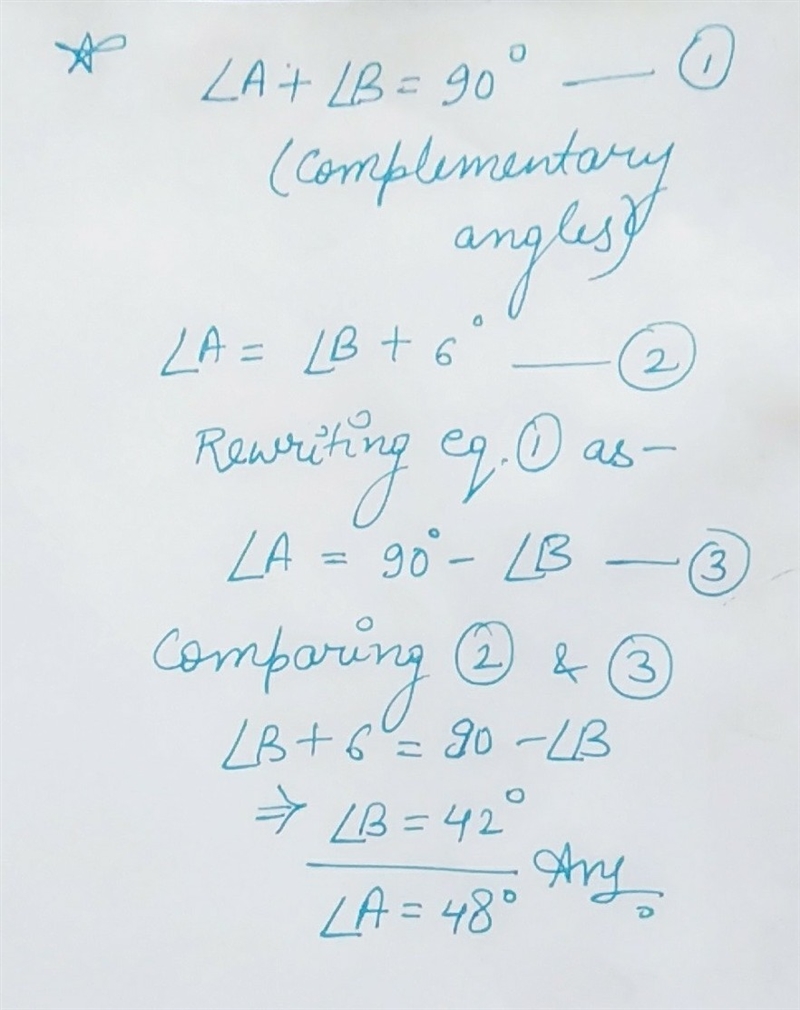 ∠A + ∠B = 90° — ①
(Complementary
angles)
∠A = ∠B + 6° — ②
Rewriting eq. ① as –
∠A = 90° – ∠B — ③
Comparing ② & ③
∠B + 6 = 90 – ∠B
⇒ ∠B = 42°
Ans
∠A = 48°